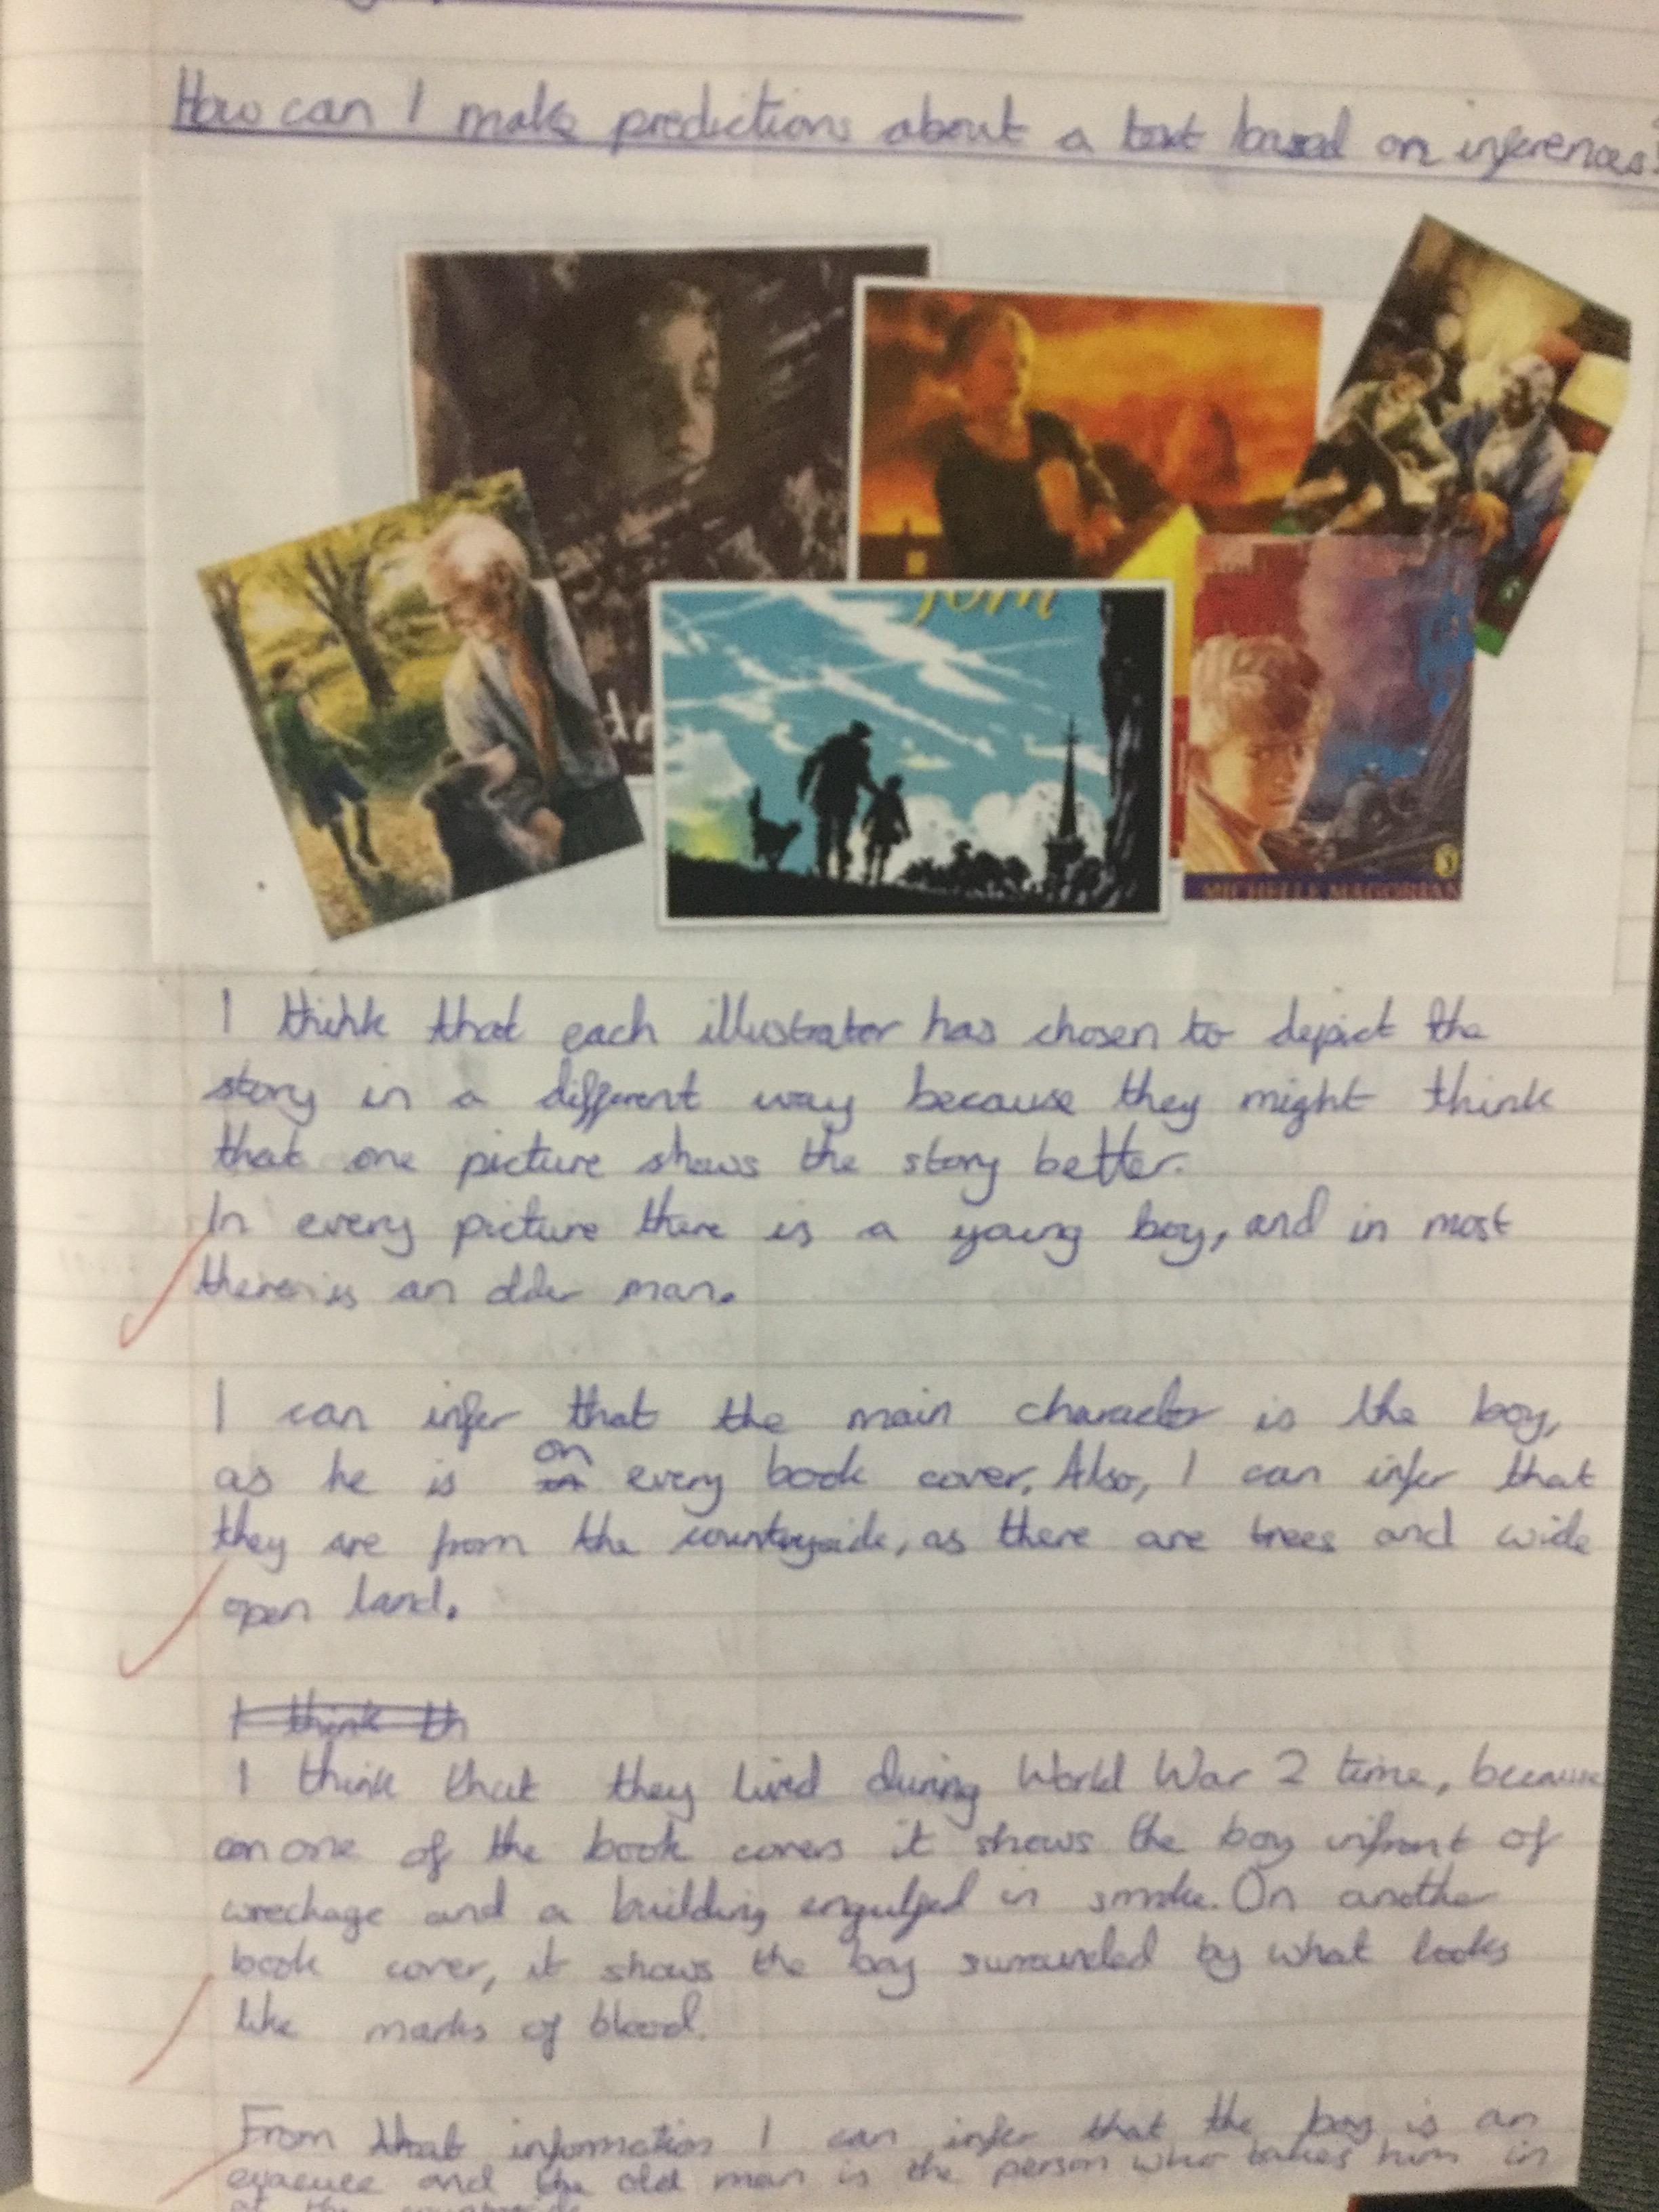 How can I make predictions about a text based on inferences?
Tom
MICHELLE MAGORIAN
I think that each illustrator has chosen to depict the
story in a different way because they might think
that one picture shows the story better.
In every picture there is a young boy, and in most
there is an older man.
I can infer that the main character is the boy,
on
as he is every book cover. Also, I can infer that
they are from the countryside, as there are trees and wide
open land.
I think th
I think that they lived during World War 2 time, because
on one of the book covers it shows the boy infront of
wrechage and a building engulfed in smoke. On another
book cover, it shows the boy surrounded by what looks
like marks of blood.
From that information I can infer that the boy is an
evacuee and the old man is the person who takes him in